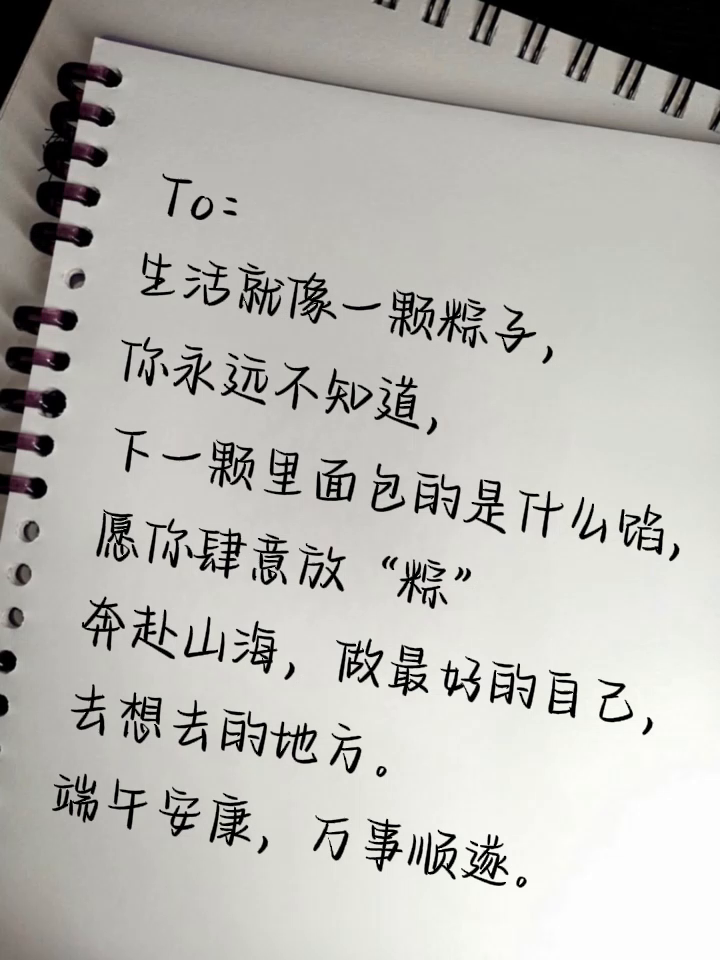 To:
生活就像一颗粽子,
你永远不知道,
下一颗里面包的是什么馅,
愿你肆意放“粽”
奔赴山海,做最好的自己,
去想去的地方。
端午安康,万事顺遂。